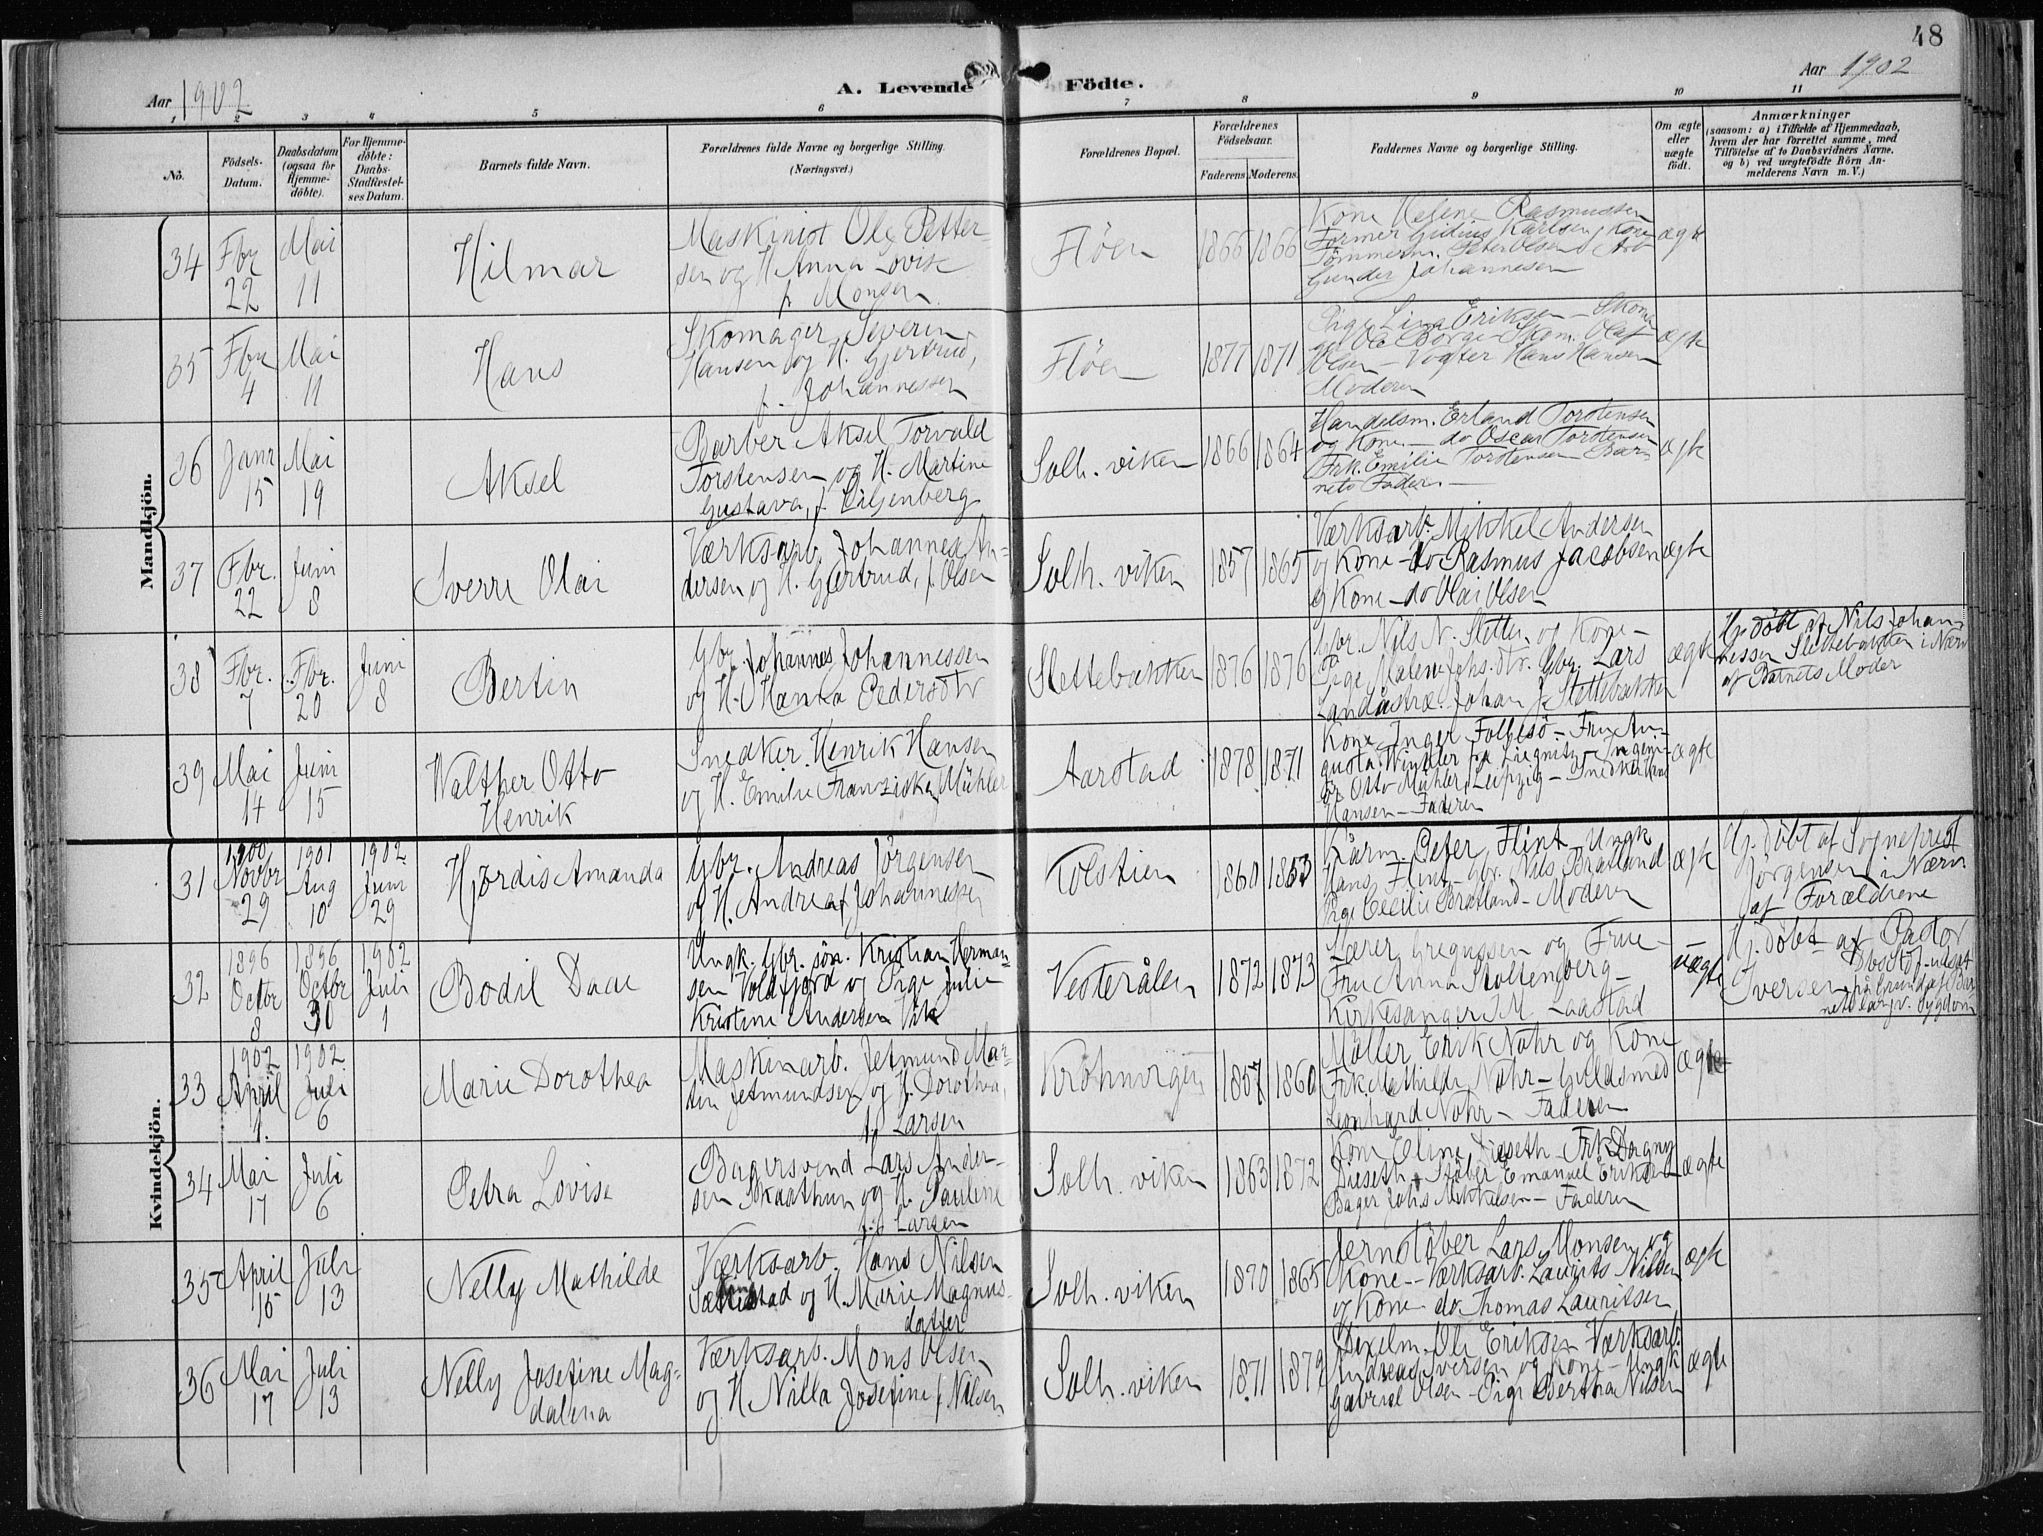 48
Aar 1902
A. Levende Födte.
Aar 1902
1 2 3 4 5 6 7 8 9 10 11
No.
Födsels-Datum.
Daabsdatum (ogsaa for Hjemme-döbte).
For Hjemme-döbte: Daabs-Stadfæstel-ses Datum.
Barnets fulde Navn.
Forældrenes fulde Navne og borgerlige Stilling.
(Næringsvei.)
Forældrenes Bopæl.
Forældrenes Födselsaar.
Faderens Moderens.
Faddernes Navne og borgerlige Stilling.
Om ægte eller uægte födt.
Anmærkninger
(saasom: a) i Tilfælde af Hjemmedaab,
hvem der har forrettet samme, med
Tilföielse af to Daabsvidners Navne,
og b) ved uegtefödte Börn An-
melderens Navn m. V.)
Mandkjön.
34 Fbr 22 Mai 11
Hilmar
Maskinist Ole Petter-
sen og H. Anna Lovise
f. Monsen
Flöen
1866 1866
Kone Helene Rasmussen
Former Gidius Karlsen, Kone
Tömmerm. Peter Olsen
Gunder Johannesen
ægte
35 Fbr 4 Mai 11
Hans
Skomager Severin
Hansen og H. Gjertrud,
f. Johannessen
Flöen
1877 1871
Pige Lina Eriksen - Skoma
ger Ole Borge - Skom. Olaf
Olsen - Vogter Hans Hansen
Moderen
ægte
36 Janr 15 Mai 19
Aksel
Barber Aksel Torvald
Torstensen og H. Martine
Gustava, f. Liljenberg
Solh. viken
1866 1864
Handelsm. Erland Torstensen
og Kone - do Oscar Torstensen
Frk. Emilie Torstensen Bar
nets Fader. -
ægte
37 Fbr. 22 Juni 8
Sverre Olai
Værksarb. Johannes An-
dersen og H. Gjertrud, f. Olsen
Solh. viken
1857 1865
Værksarb. Mikkel Andersen
og Kone - do Rasmus Jacobsen
og Kone - do Olai Olsen
ægte
38 Fbr. 7 Fbr. 20 Juni 8
Bertin
Gbr. Johannes Johannessen
og H. Hanna Pedersdtr
Slettebakken
1876 1876
Gbr. Nils N. Slette og Kone -
Pige Malene Johs.dtr. Gbr. Lars
Landaas Johan J. Slettebakken
ægte
Hj. döbt af Nils Johan-
nessen Slettebakken i Nærv
af Barnets Moder
39 Mai 14 Juni 15
Walther Otto
Henrik
Snedker Henrik Hansen
og H. Emilie Franziska Mühler
Aarstad
1878 1871
Kone Inger Follesö - Fru Au-
gusta Winkler fra Liegnitz - Ingeni-
ör Otto Mühler, Leipzig - Snedker Hans
Hansen - Faderen
ægte
Kvindekjön.
31 1900 Novbr 29 1901 Aug 10 1902 Juni 29
Hjördis Amanda
Gbr. Andreas Jörgensen
og H. Andrea f. Johannessen
Kolstien
1860 1853
Peter Flint - Ungk
Hans Flint - Gbr. Nils Bratland
Pige Cecilie Bratland - Moderen
ægte
Hj. döbt af Sogneprest
Jörgensen i Nærv.
af Forældrene
32 1896 Octbr 8 1896 Octbr 30 1902 Juli 1
Bodil Daae
Ungk. Gbr. sön. Kristian Herman-
sen Voldfjord og Pige Julie
Kristine Andersen Vik
Vesterålen
1872 1873
Lærer Gregussen og Frue -
Fru Anna Stoltenberg -
Kirkesanger
uægte
Hj. döbt af Pastor
Iversen
33 1902 April 1. 1902 Juli 6
Marie Dorothea
Maskinarb. Jetmund Mar-
tin Jetmundsen og H. Dorothea,
f. Larsen
Krohnvigen
1857 1860
Möller Erik Nohr og Kone
Frk. Mathilde Nohr - Guldsmed
Leonhard Nohr - Faderen
ægte
34 Mai 17 Juli 6
Petra Lovise
Bagersvend Lars Ander-
sen Skaathun og H. Pauline
f. Larsen
Solh. viken
1863 1872
Kone Eline Dieseth - Frk. Dagny
Dieseth - Stöber Emanuel Eriksen
Bager Johs Mikkelsen - Faderen
ægte
35 April 15 Juli 13
Nelly Mathilde
Værksarb. Hans Nilsen
og H. Marie Magnus-
datter
Solh. viken
1870 1865
Jernstöber Lars Monsen og
Kone - Værksarb. Laurits Nilsen
og Kone do. Thomas Lauritsen
ægte
36 Mai 17 Juli 13
Nelly Josefine Mag-
dalena
Værksarb. Mons Olsen
og H. Nilla Josefine f. Nilsen
Solh. viken
1871 1879
Ole Eriksen Værksarb.
Andreas Iversen og Kone - Ungk
Gabriel Olsen - Pige Bertha Nilsen
ægte